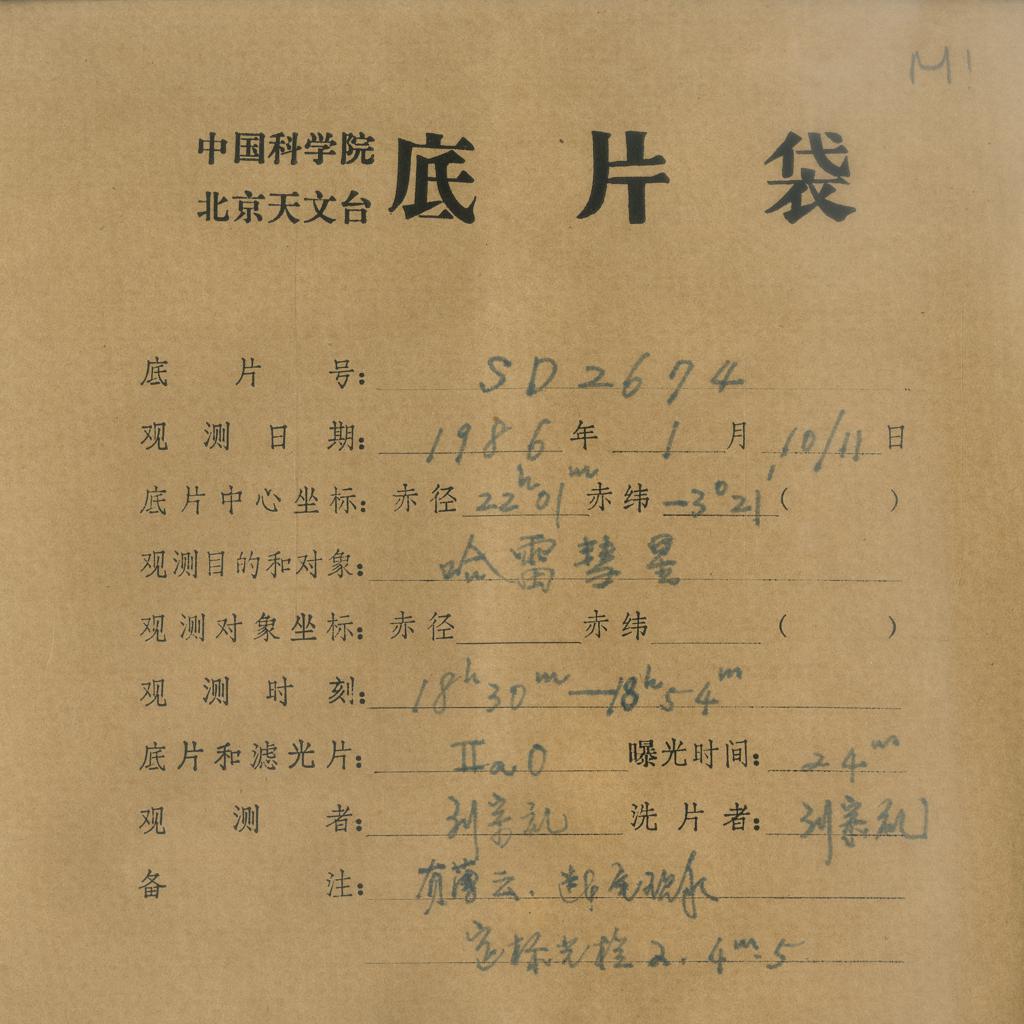 M1
中国科学院
北京天文台 底片袋
底片号: SD2674
观测日期: 1986年 1月 10/11日
底片中心坐标: 赤径 22h01m 赤纬 -3°21′ ( )
观测目的和对象: 哈雷彗星
观测对象坐标: 赤径 赤纬 ( )
观测时刻: 18h30m—18h54m
底片和滤光片: IIaO 曝光时间: 24m
观测者: 刘宗礼 洗片者: 刘宗礼
备注: 有薄云.
定标光栏 2. 4m.5